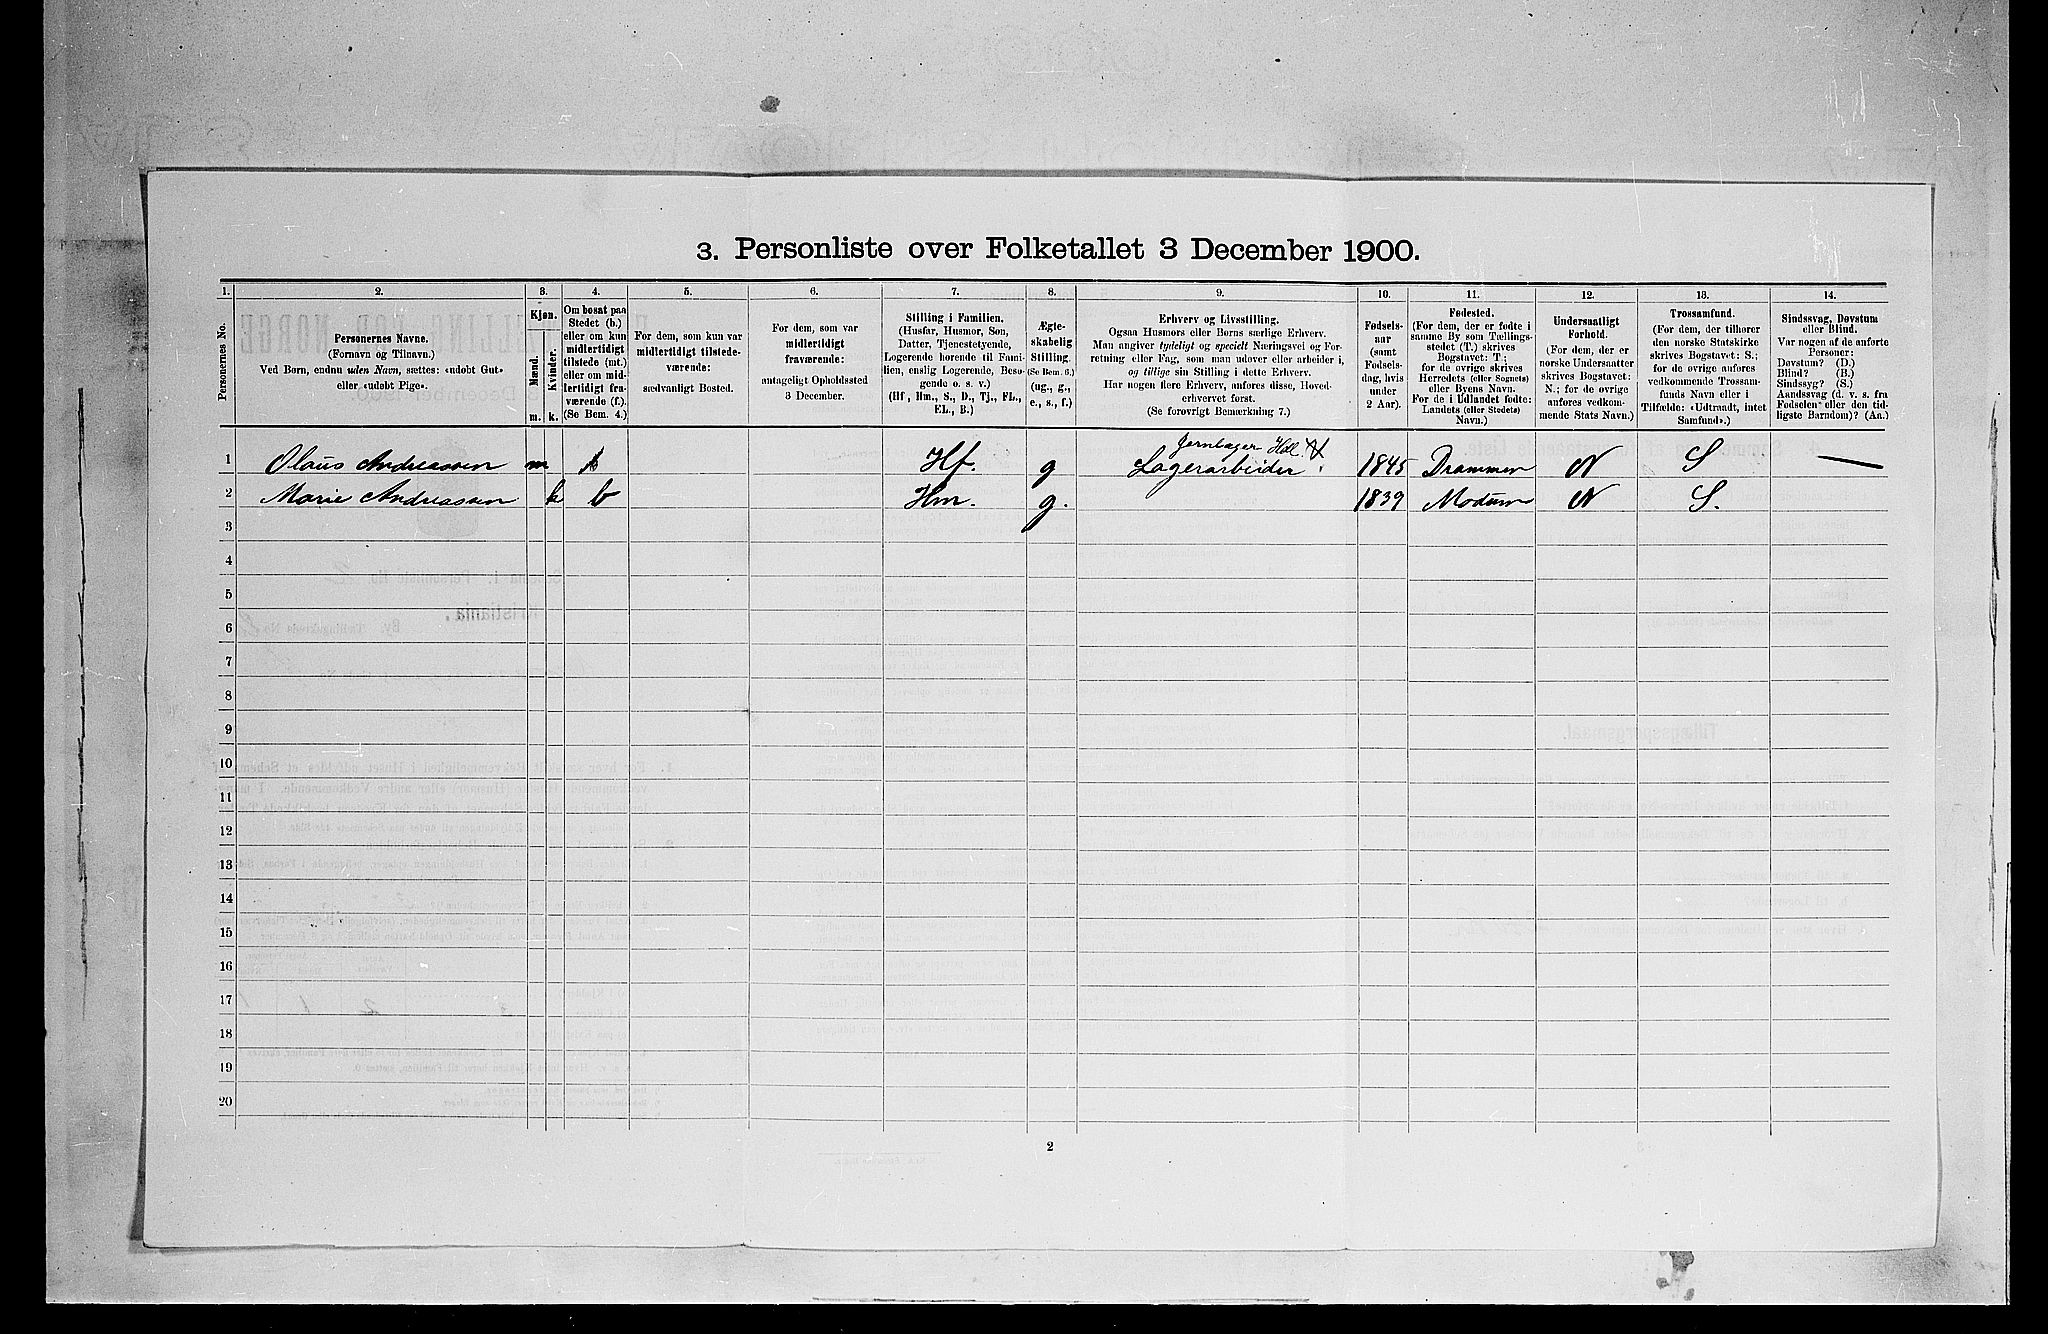 3. Personliste over Folketallet 3 December 1900.
1. 2. 3. 4. 5. 6. 7. 8. 9. 10. 11. 12. 13. 14.
Personernes No.
Personernes Navne.
(Fornavn og Tilnavn.)
Ved Børn, endnu uden Navn, sættes: «udøbt Gut»
eller «udøbt Pige».
Kjøn.
Mænd.
Kvinder.
m. k.
Om bosat paa
Stedet (b.)
eller om kun
midlertidigt
tilstede (mt.)
eller om mid-
lertidigt fra-
værende (f.).
(Se Bem. 4.)
For dem, som kun var
midlertidigt tilstede-
værende:
sædvanligt Bosted.
For dem, som var
midlertidigt
fraværende:
antageligt Opholdssted
3 December.
Stilling i Familien.
(Husfar, Husmor, Søn,
Datter, Tjenestetyende,
Logerende hørende til Fami-
lien, enslig Logerende, Besø-
gende o. s. v.)
(Hf, Hm., S., D., Tj., FL.,
EL., B.)
Ægte-
skabelig
Stilling.
(Se Bem. 6.)
(ug., g.,
e., s., f.)
Erhverv og Livsstilling.
Ogsaa Husmors eller Børns særlige Erhverv.
Man angiver tydeligt og specielt Næringsvei og For-
retning eller Fag, som man udøver eller arbeider i,
og tillige sin Stilling i dette Erhverv.
Har nogen flere Erhverv, anføres disse, Hoved-
erhvervet først.
(Se forøvrigt Bemærkning 7.)
Fødsels-
aar
(samt
Fødsels-
dag, hvis
under
2 Aar).
Fødested.
(For dem, der er fødte i
samme By som Tællings-
stedet (T.) skrives
Bogstavet: T.;
for de øvrige skrives
Herredets (eller Sognets)
eller Byens Navn.
For de i Udlandet fødte:
Landets (eller Stedets)
Navn.)
Undersaatligt
Forhold.
(For dem, der er
norske Undersaatter
skrives Bogstavet:
N.; for de øvrige
anføres vedkom-
mende Stats Navn.)
Trossamfund.
(For dem, der tilhører
den norske Statskirke
skrives Bogstavet: S.;
for de øvrige anføres
vedkommende Trossam-
funds Navn eller i
Tilfælde: «Udtraadt, intet
Samfund».)
Sindssvag, Døvstum
eller Blind.
Var nogen af de anførte
Personer:
Døvstum? (D.)
Blind? (B.)
Sindssyg? (S.)
Aandssvag (d. v. s. fra
Fødselen eller den tid-
ligste Barndom)? (Aa.)
Jernlager Hdl.
1 Olaus Andreassen m b Hf. g Lagerarbeider 1845 Drammen N S —
2 Marie Andreassen k b Hm. g. 1839 Modum N S.
3
4
5
6
7
8
9
10
11
12
13
14
15
16
17
18
19
20
2